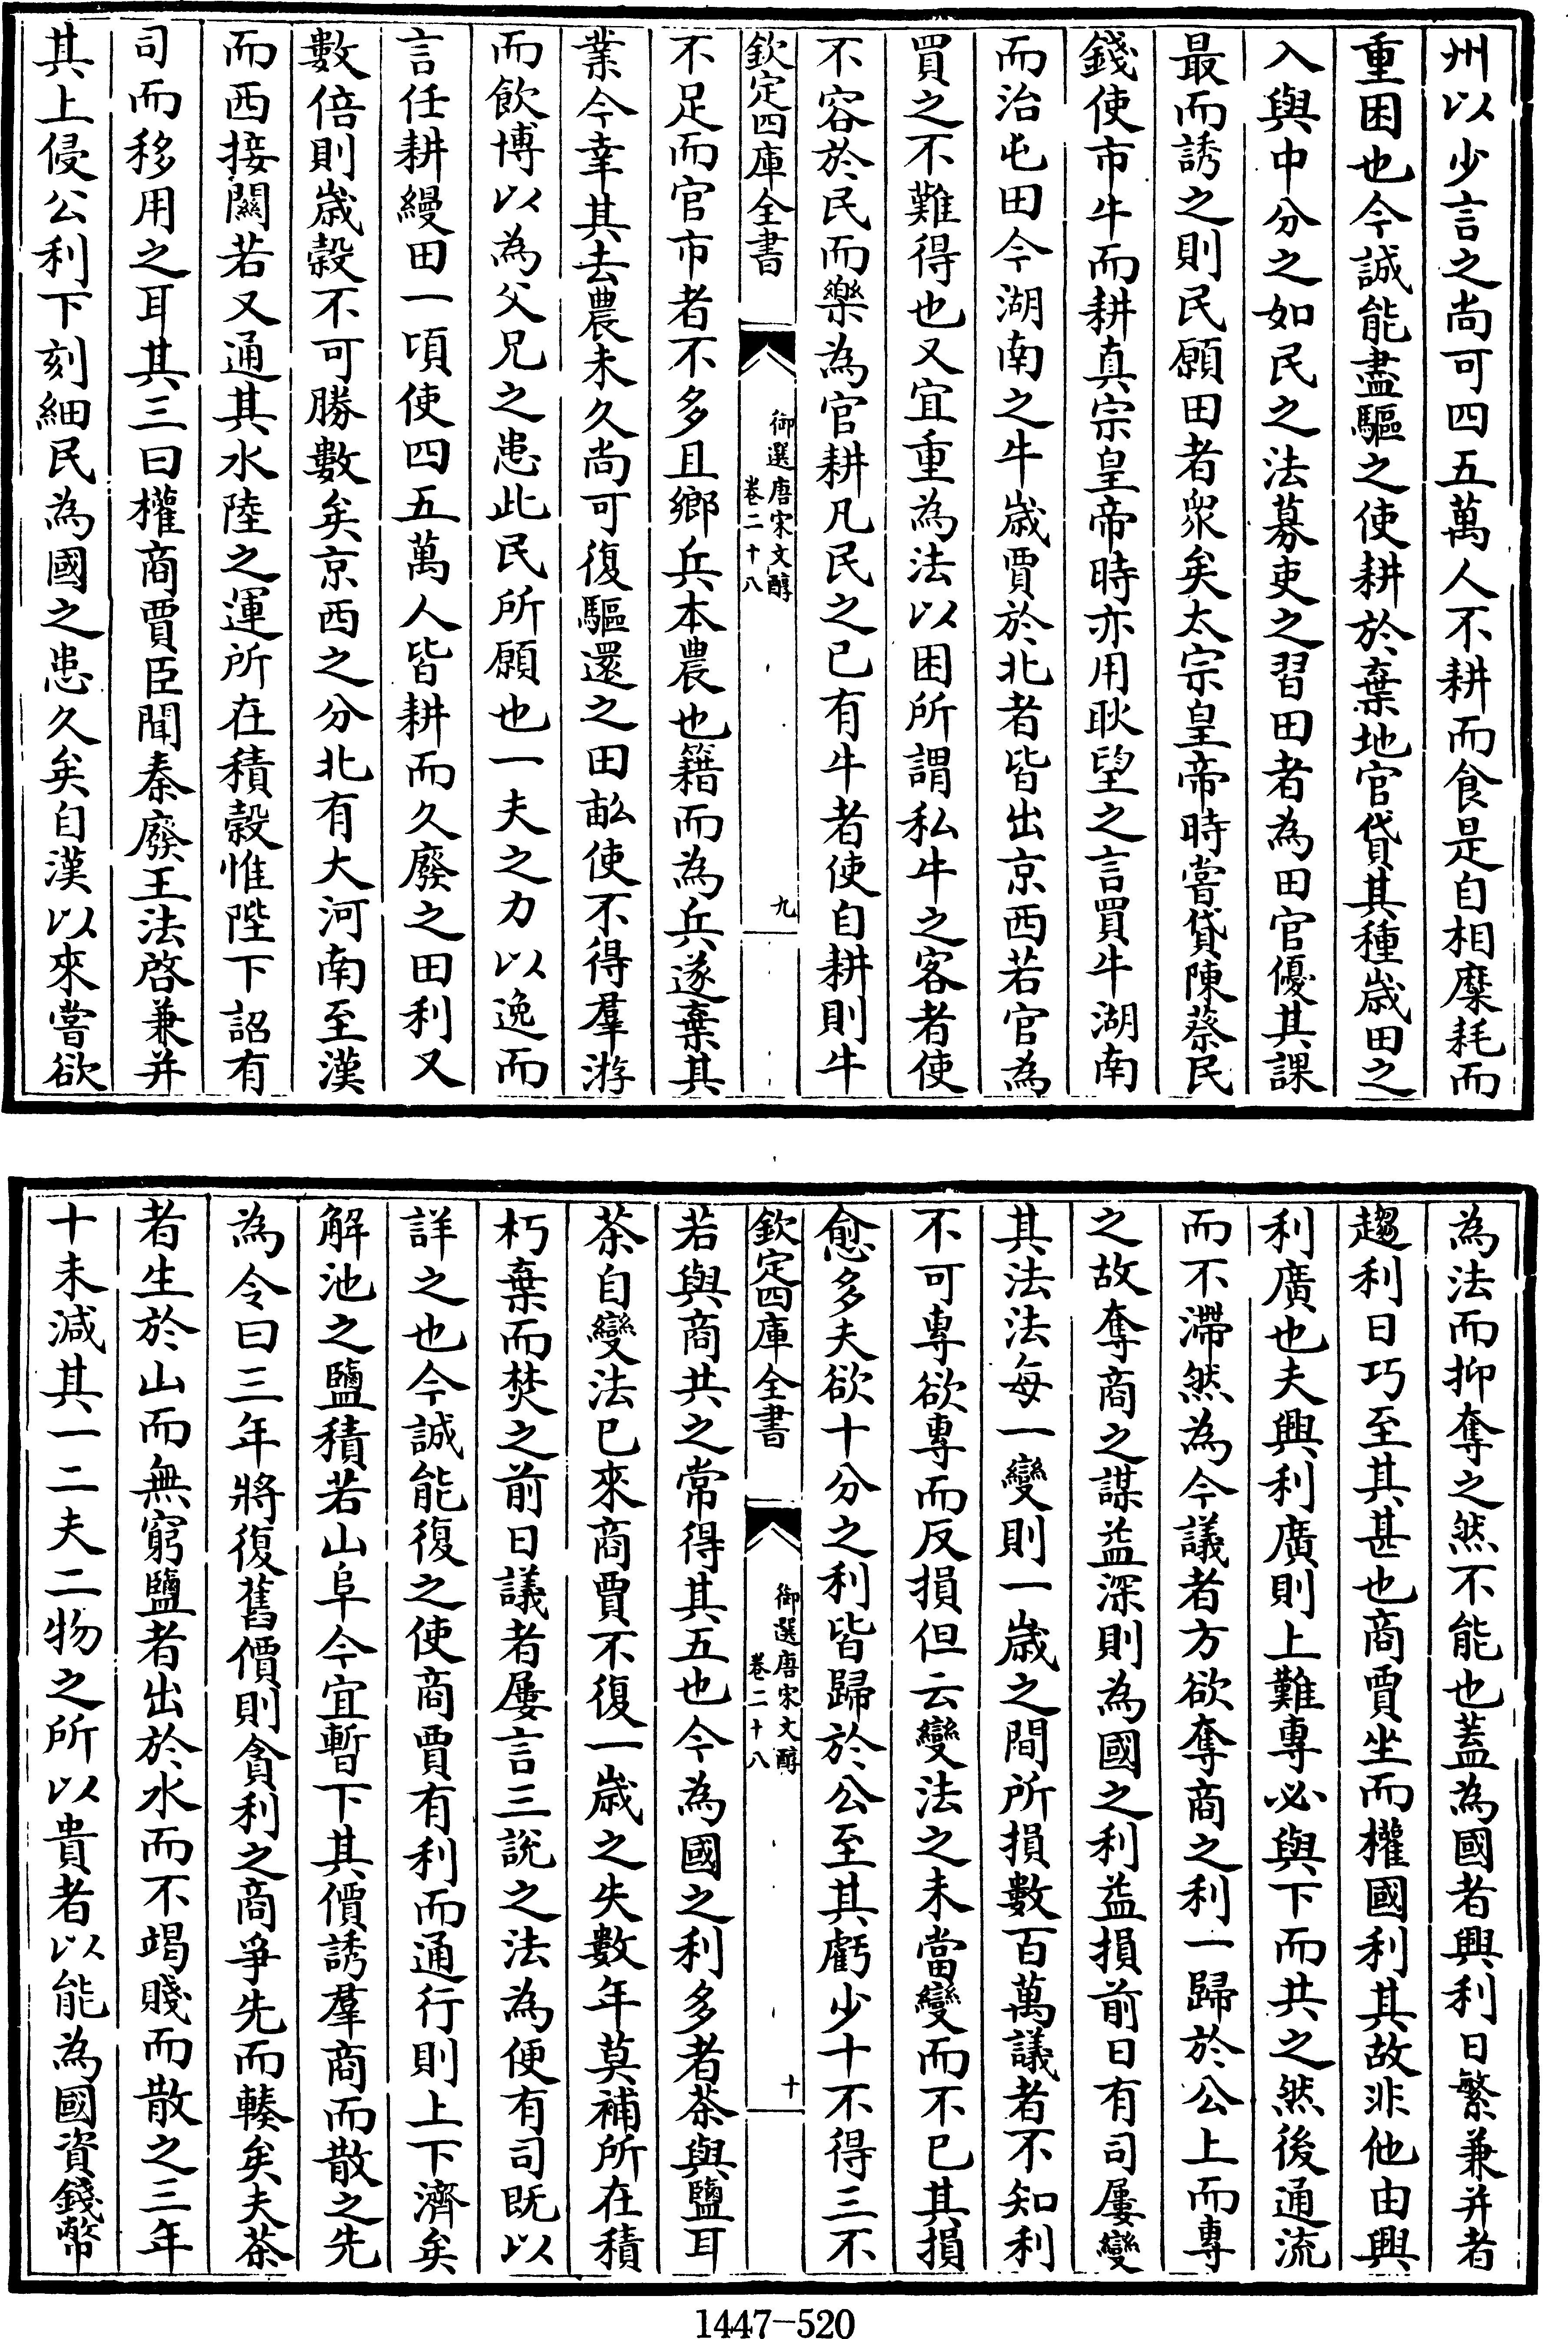 州以少言之尚可四五萬人不耕而食是自相糜耗而
重困也今誠能盡驅之使耕於棄地官貸其種歲田之
入與中分之如民之法募吏之習田者為田官優其課
最而誘之則民願田者衆矣太宗皇帝時嘗貸陳蔡民
錢使市牛而耕真宗皇帝時亦用耿望之言買牛湖南
而治屯田今湖南之牛歲賈於北者皆出京西若官為
買之不難得也又宜重為法以困所謂私牛之客者使
不容於民而樂為官耕凡民之已有牛者使自耕則牛
欽定四庫全書
御選唐宋文醇
卷二十八
九
不足而官市者不多且鄉兵本農也籍而為兵遂棄其
業今幸其去農未久尚可復驅還之田畝使不得羣游
而飲博以為父兄之患此民所願也一夫之力以逸而
言任耕縵田一頃使四五萬人皆耕而久廢之田利又
數倍則歲穀不可勝數矣京西之分北有大河南至漢
而西接關若又通其水陸之運所在積穀惟陛下詔有
司而移用之耳其三曰權商賈臣聞秦廢王法啓兼并
其上侵公利下刻細民為國之患久矣自漢以來嘗欲
為法而抑奪之然不能也蓋為國者興利日繁兼并者
趨利日巧至其甚也商賈坐而權國利其故非他由興
利廣也夫興利廣則上難專必與下而共之然後通流
而不滯然為今議者方欲奪商之利一歸於公上而專
之故奪商之謀益深則為國之利益損前日有司屢變
其法法每一變則一歲之間所損數百萬議者不知利
不可專欲專而反損但云變法之未當變而不已其損
愈多夫欲十分之利皆歸於公至其虧少十不得三不
欽定四庫全書
御選唐宋文醇
卷二十八
十
若與商共之常得其五也今為國之利多者茶與鹽耳
茶自變法已來商賈不復一歲之失數年莫補所在積
朽棄而焚之前日議者屢言三說之法為便有司既以
詳之也今誠能復之使商賈有利而通行則上下濟矣
解池之鹽積若山阜今宜暫下其價誘羣商而散之先
為令曰三年將復舊價則貪利之商爭先而輳矣夫茶
者生於山而無窮鹽者出於水而不竭賤而散之三年
十未減其一二夫二物之所以貴者以能為國資錢幣
1447-520